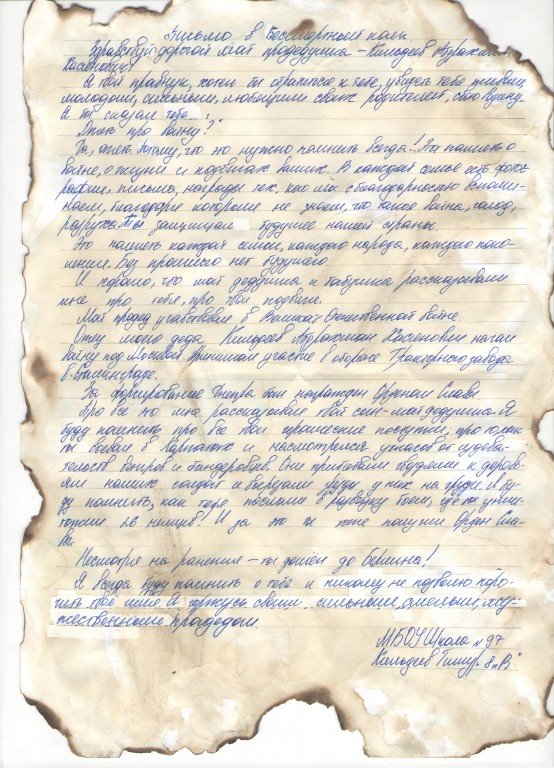 Письмо в Бессмертный полк.
Здравствуй дорогой мой прадедушка – Кильдеев Абдрахман
Хасянович!
Я твой правнук, хотел бы обратиться к тебе, увидеть тебя живым,
молодым, сильным, любящим своих родителей, свою Родину.
Я бы сказал тебе... :
„Опять про войну?"
Да, опять. Потому, что это нужно помнить всегда! Это память о
войне, о жизни и подвигах ваших. В каждой семье есть фотог-
рафии, письма, награды тех, кого мы с благодарностью вспоми-
наем, благодаря которым не знаем, что такое война, голод,
разруха. Ты защищал будущее нашей страны.
Это память каждой семьи, каждого народа, каждого поко-
ления. Без прошлого нет будущего.
И здорово, что мой дедушка и бабушка рассказывали
мне про тебя, про твои подвиги.
Мой прадед участвовал в Великой Отечественной войне.
Отец моего деда Кильдеев Абдрахман Хасянович начал
войну под Москвой принимал участие в обороне Тракторного завода
в Сталинграде.
За форсирование Днепра был награжден Орденом Славы
Про все это мне рассказывал твой сын – мой дедушка. Я
буду помнить про все твои героические поступки, про то, как
ты воевал в Карпатах и насмотрелся ужасов от издева-
тельств бандеровцев. Они прибивали гвоздями к дерев-
ьям наших солдат и вырезали звезды у них на груди. Я бу-
ду помнить, как тебя послали в разведку боем, где ты уничт-
26 немцев! И за это ты тоже получил Орден Сла-
вы.
Несмотря на ранения – ты дошёл до Берлина!
Я всегда буду помнить о тебе и никому не позволю поро-
чить твое имя. Я горжусь своим сильным, смелым, му-
жественным прадедом.
МБОУ Школа № 97
Кильдеев Тимур 8 „В"